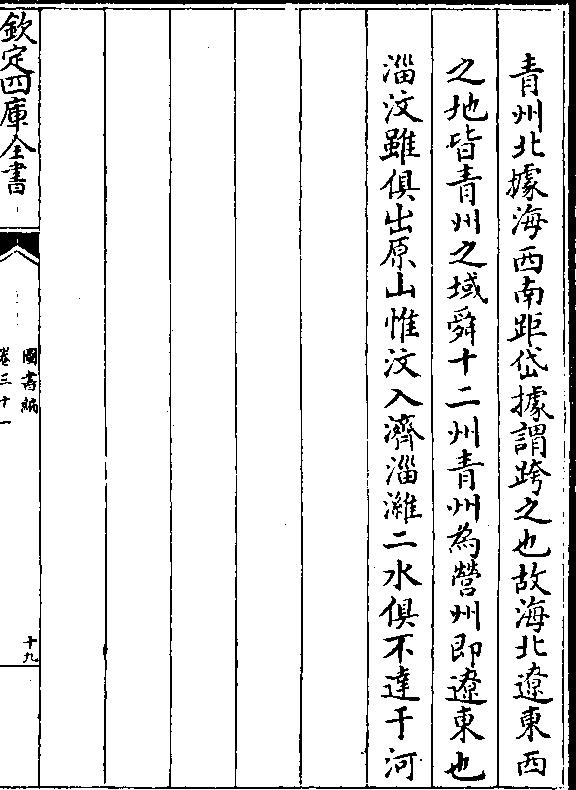 青州北據海西南距岱據謂跨之也故海北遼東西
之地皆青州之域舜十二州青州為營州即遼東也
淄汶雖俱出原山惟汶入濟淄濰二水俱不達于河
欽定四庫全書
圖書編
卷三十一
十九